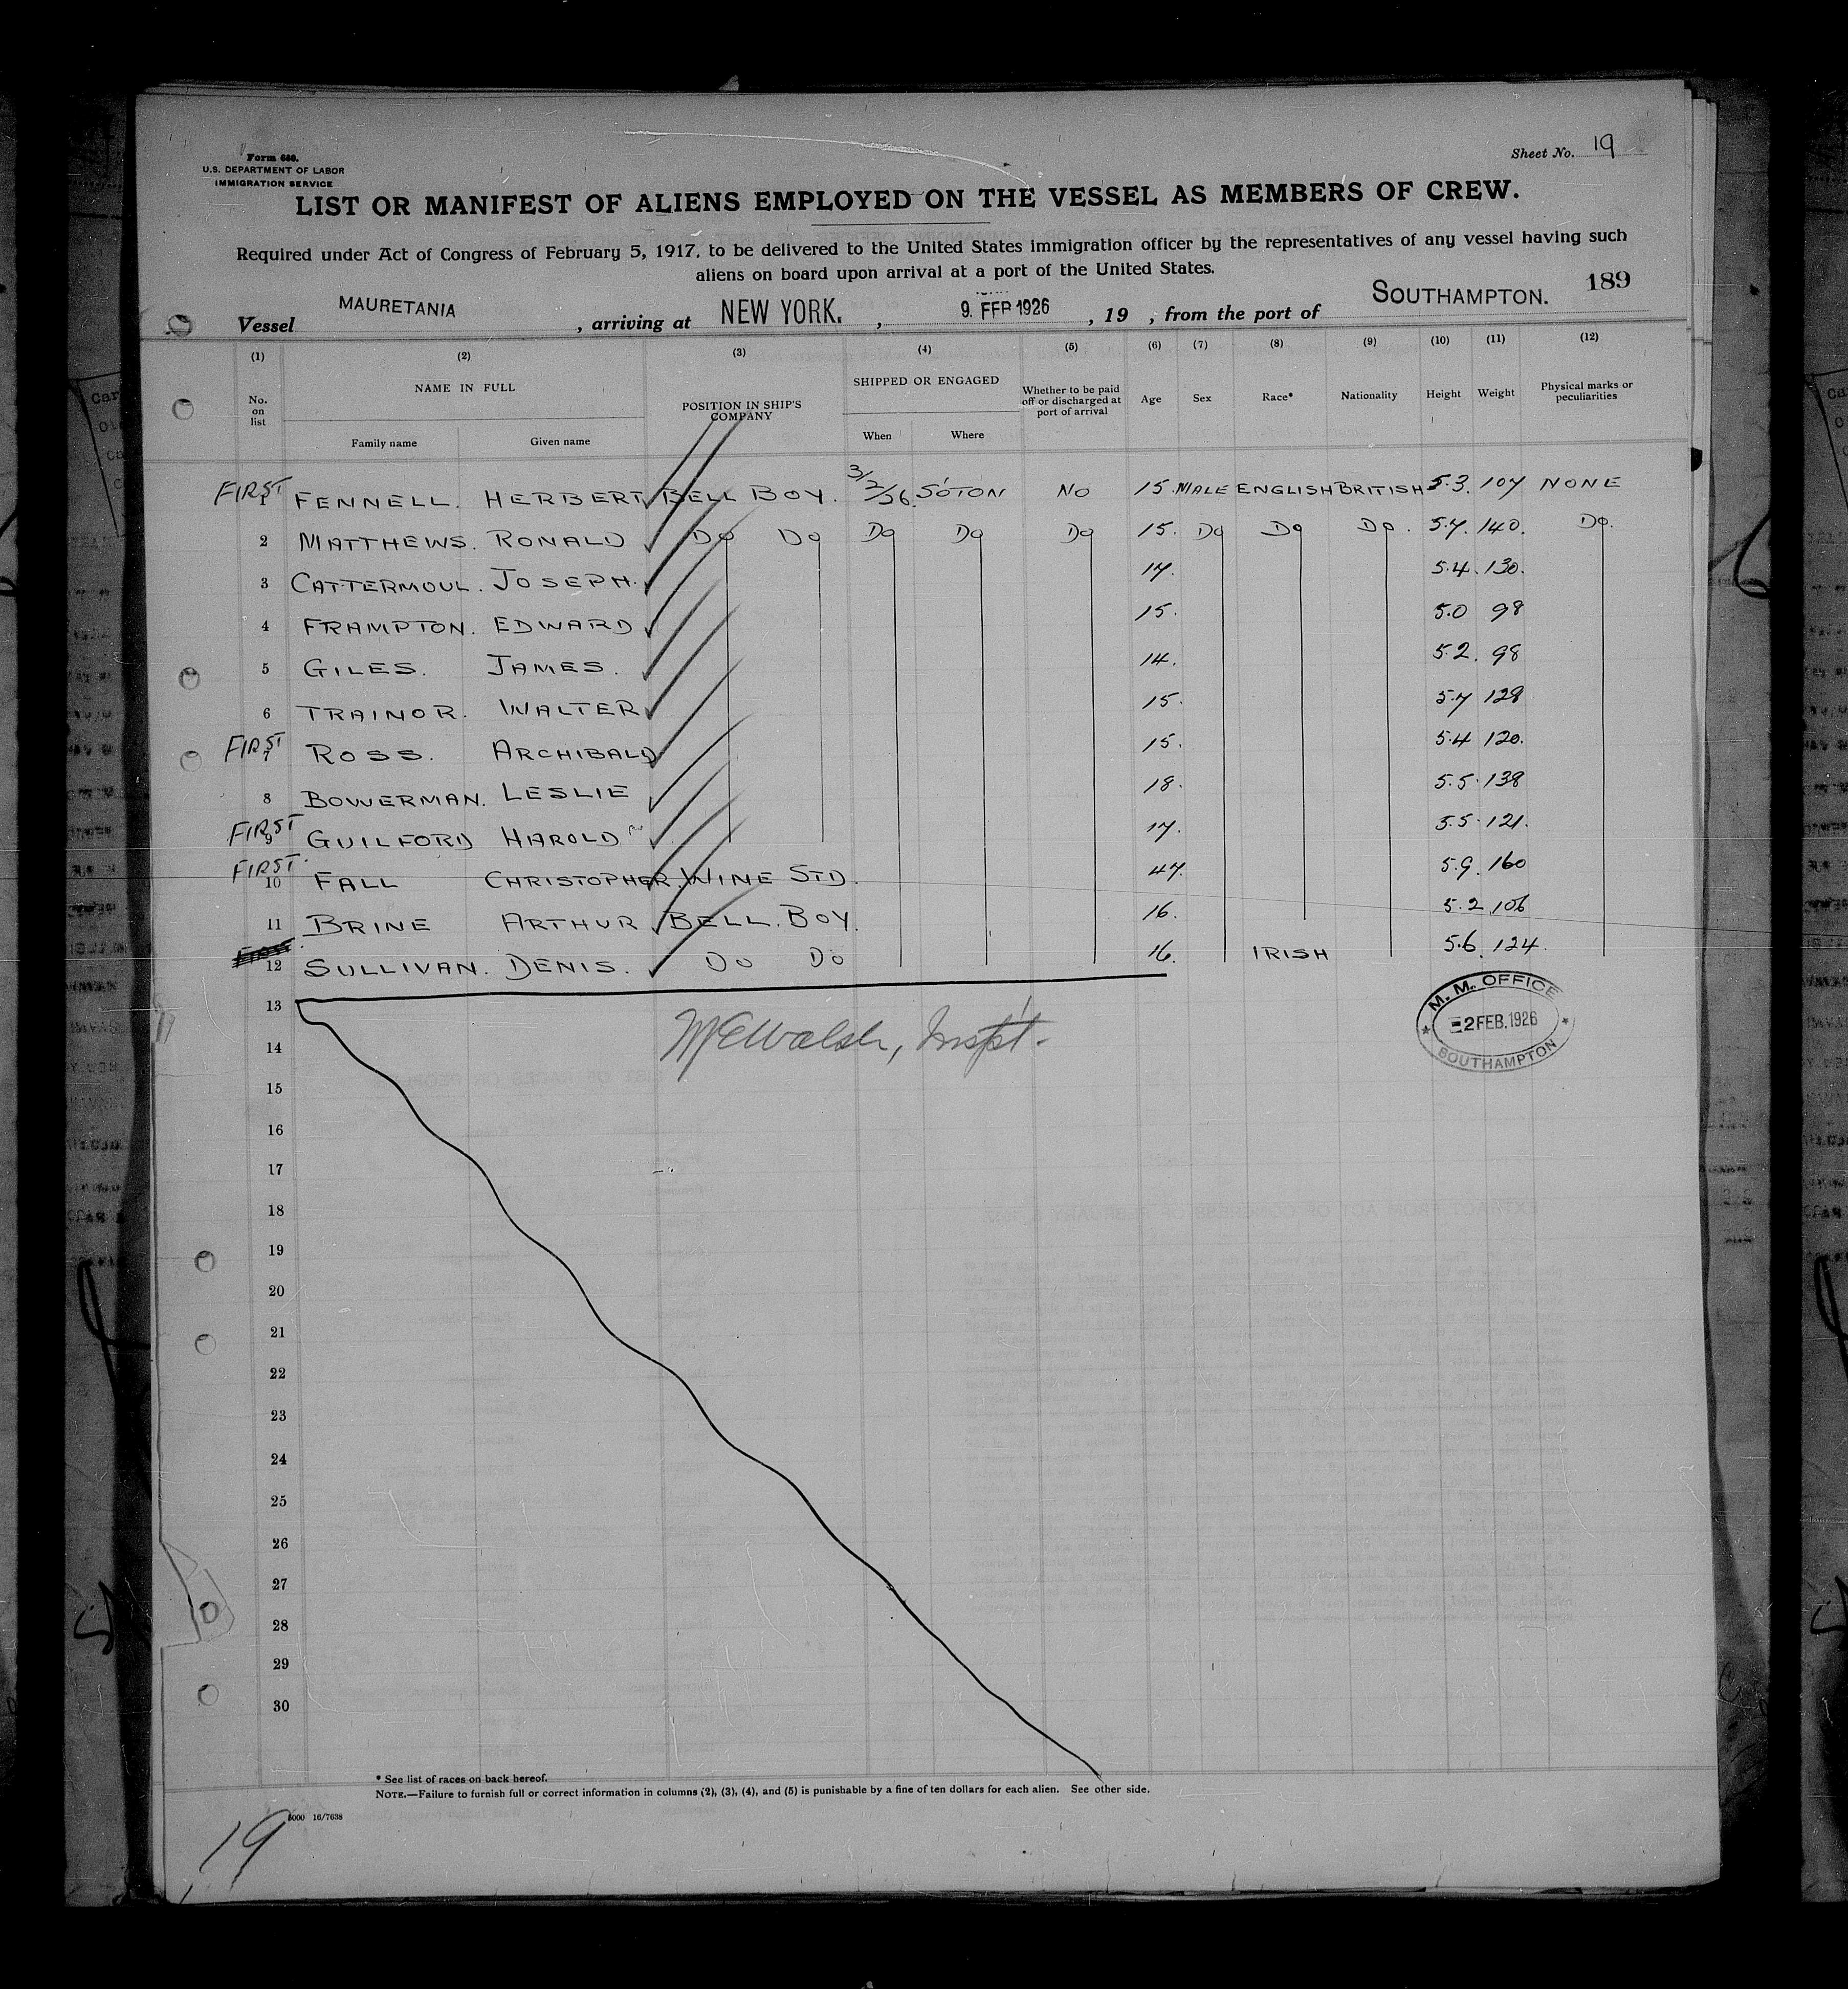 Form 686.
U.S. DEPARTMENT OF LABOR
IMMIGRATION SERVICE
Sheet No. 19
LIST OR MANIFEST OF ALIENS EMPLOYED ON THE VESSEL AS MEMBERS OF CREW.
Required under Act of Congress of February 5, 1917, to be delivered to the United States immigration officer by the representatives of any vessel having such
aliens on board upon arrival at a port of the United States.
189
Vessel MAURETANIA, arriving at NEW YORK., 9. FEB 1926, 19 , from the port of SOUTHAMPTON.
(1) (2) (3) (4) (5) (6) (7) (8) (9) (10) (11) (12)
No. on list NAME IN FULL Family name Given name POSITION IN SHIP'S COMPANY SHIPPED OR ENGAGED When Where Whether to be paid off or discharged at port of arrival Age Sex Race* Nationality Height Weight Physical marks or peculiarities
FIRST 1 FENNELL. HERBERT BELL BOY. 3/2/26. S'OTON NO 15. MALE ENGLISH BRITISH 5.3. 107 NONE
2 MATTHEWS. RONALD DO DO DO DO DO 15. DO DO DO. 5.7. 140. DO.
3 CATTERMOUL. JOSEPH. 17. 5.4. 130.
4 FRAMPTON. EDWARD 15. 5.0 98
5 GILES. JAMES. 14. 5.2. 98
6 TRAINOR. WALTER 15. 5.7 128
FIRST 7 ROSS. ARCHIBALD 15. 5.4 120.
8 BOWERMAN. LESLIE 18. 5.5. 138
FIRST 9 GUILFORD HAROLD 17. 5.5. 121.
FIRST. 10 FALL CHRISTOPHER. WINE STD. 47. 5.9. 160
11 BRINE ARTHUR BELL. BOY. 16. 5.2. 106
12 SULLIVAN. DENIS. DO DO 16. IRISH 5.6. 124.
13
M. M. OFFICE
2 FEB. 1926
SOUTHAMPTON
Walsh, Insp't.
14
15
16
17
18
19
20
21
22
23
24
25
26
27
28
29
30
* See list of races on back hereof.
NOTE.—Failure to furnish full or correct information in columns (2), (3), (4), and (5) is punishable by a fine of ten dollars for each alien. See other side.
5000 16/7638
19